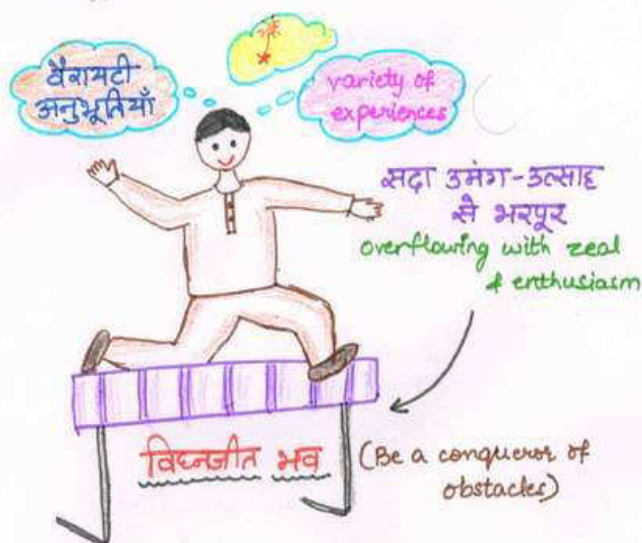 वैरायटी
अनुभूतियाँ
variety of
experiences
सदा उमंग-उत्साह
से भरपूर
overflowing with zeal
& enthusiasm
विघ्नजीत भव
(Be a conqueror of
obstacles)